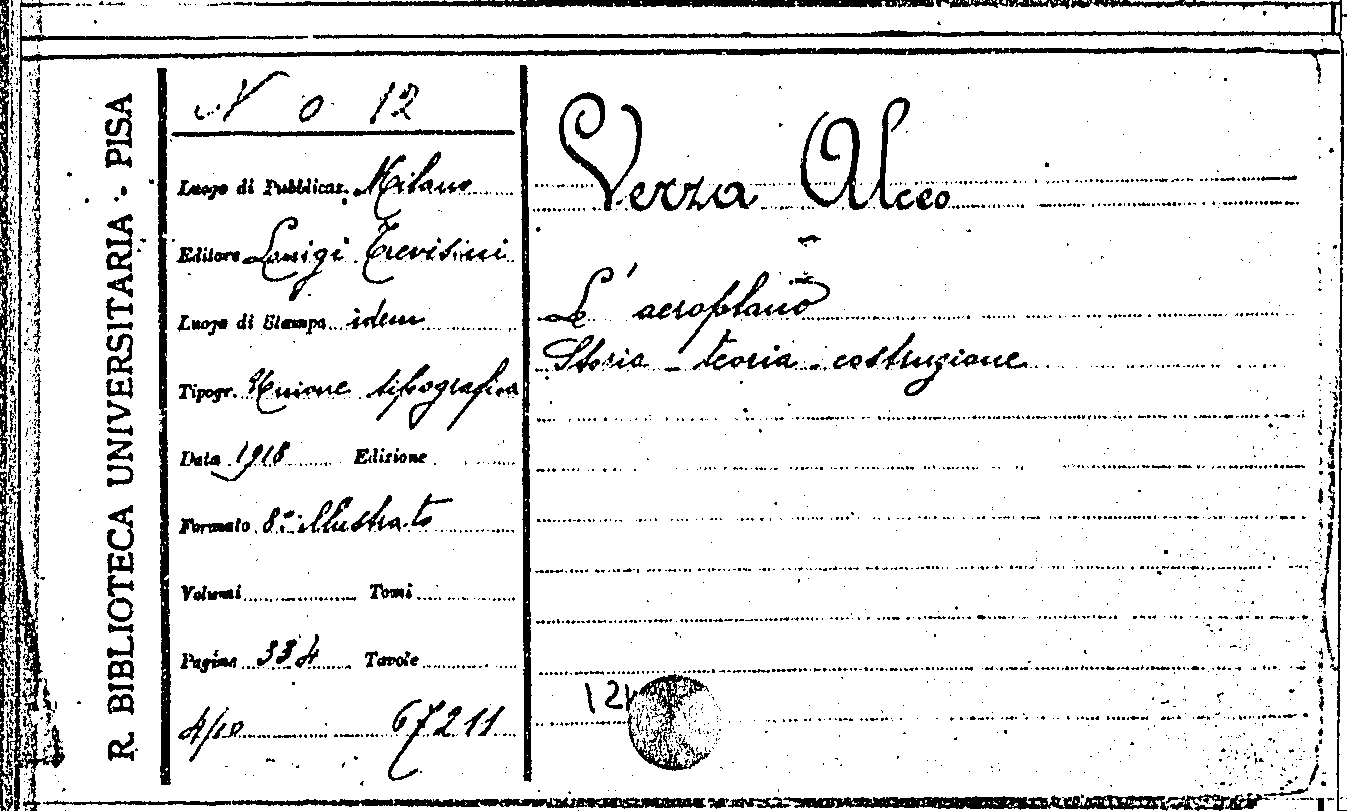 R. BIBLIOTECA UNIVERSITARIA - PISA
N o 12
Luogo di Pubblicaz. Milano
Editore Luigi Trevisini
Luogo di Stampa idem
Tipogr. Unione tipografica
Data 1918 Edizione
Formato 8° illustrato
Volumi Tomi
Pagine 334 Tavole
4/10 67211
Verza Alceo
L'aeroplano
Storia - teoria - costruzione